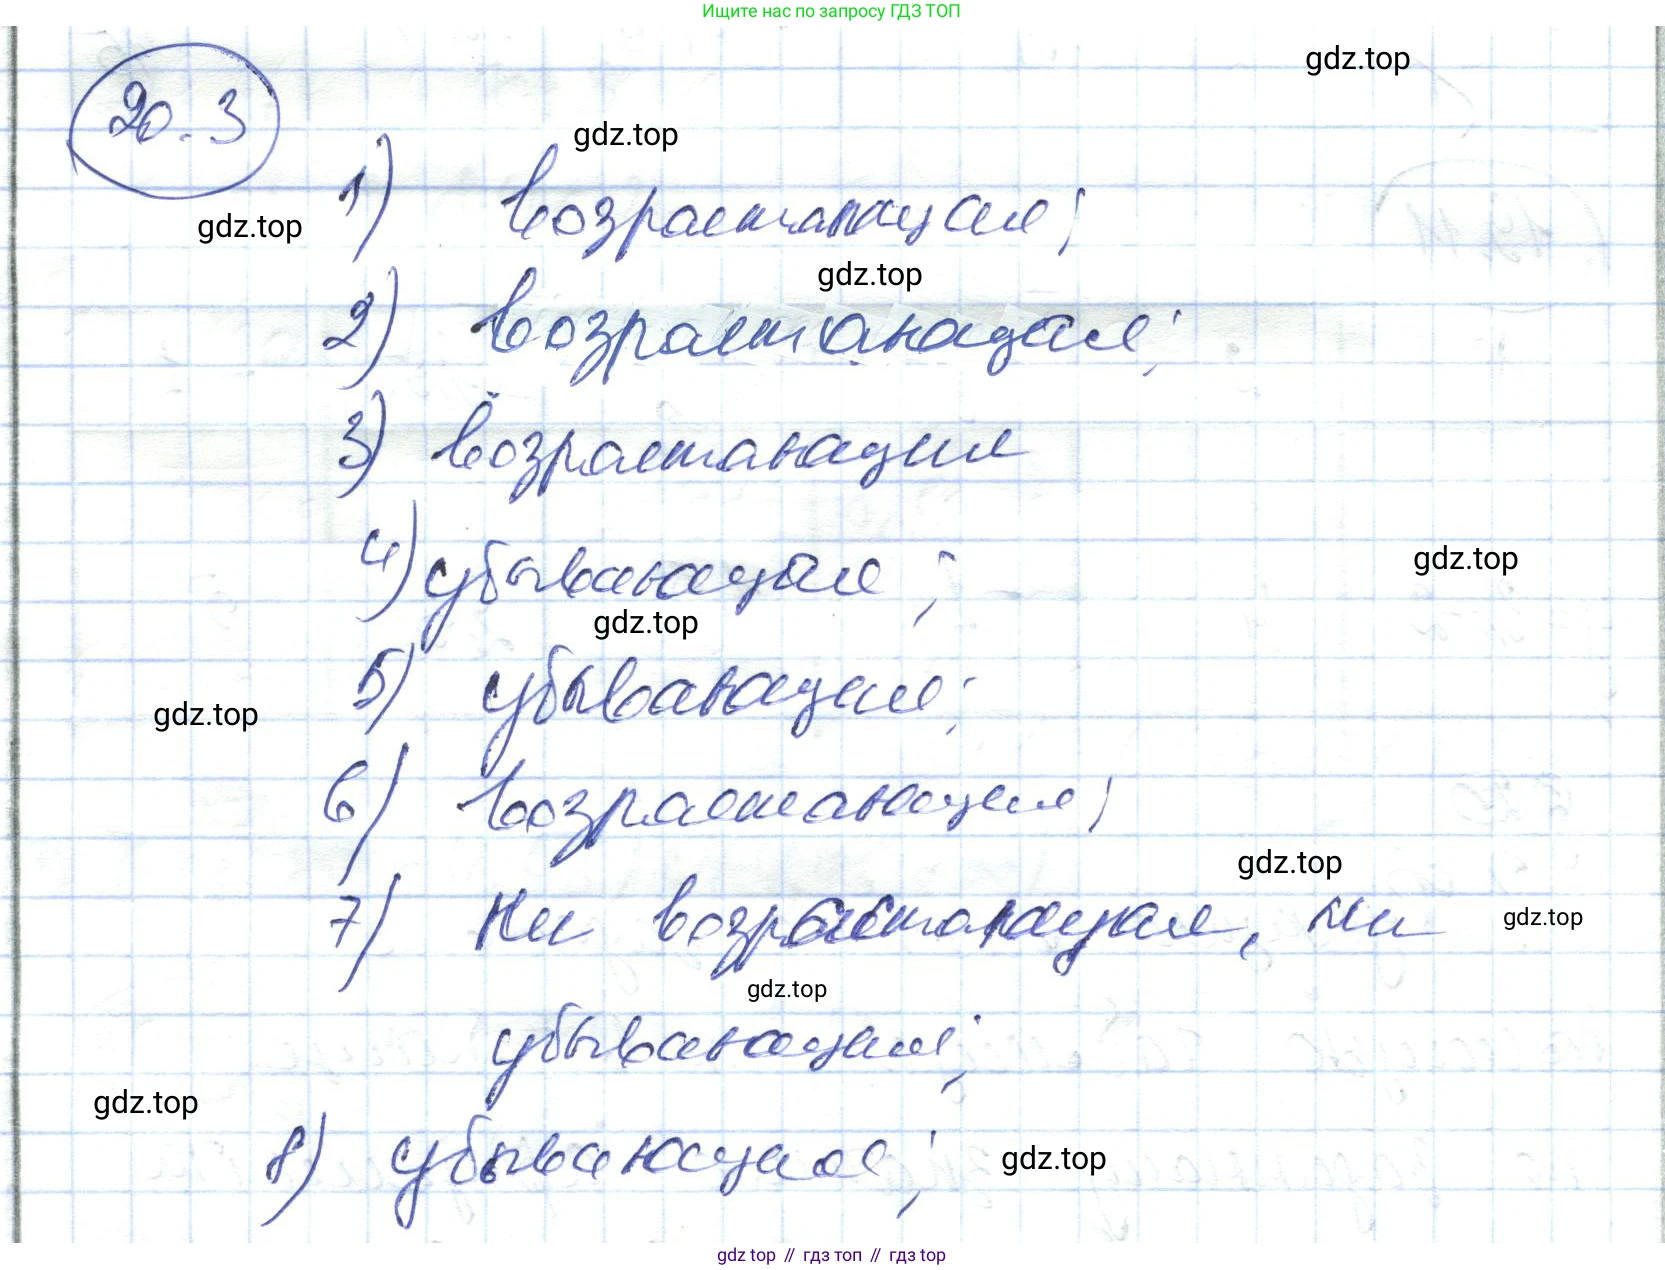 Ищите нас по запросу ГДЗ ТОП
gdz.top
20.3
gdz.top
1) возрастающая;
gdz.top
gdz.top
2) возрастающая;
3) возрастающая
4) убывающая;
gdz.top
gdz.top
5) убывающая;
gdz.top
6) возрастающая;
gdz.top
7) ни возрастающая, ни
gdz.top
gdz.top
убывающая;
gdz.top
8) убывающая;
gdz.top
gdz top // гдз топ // гдз top